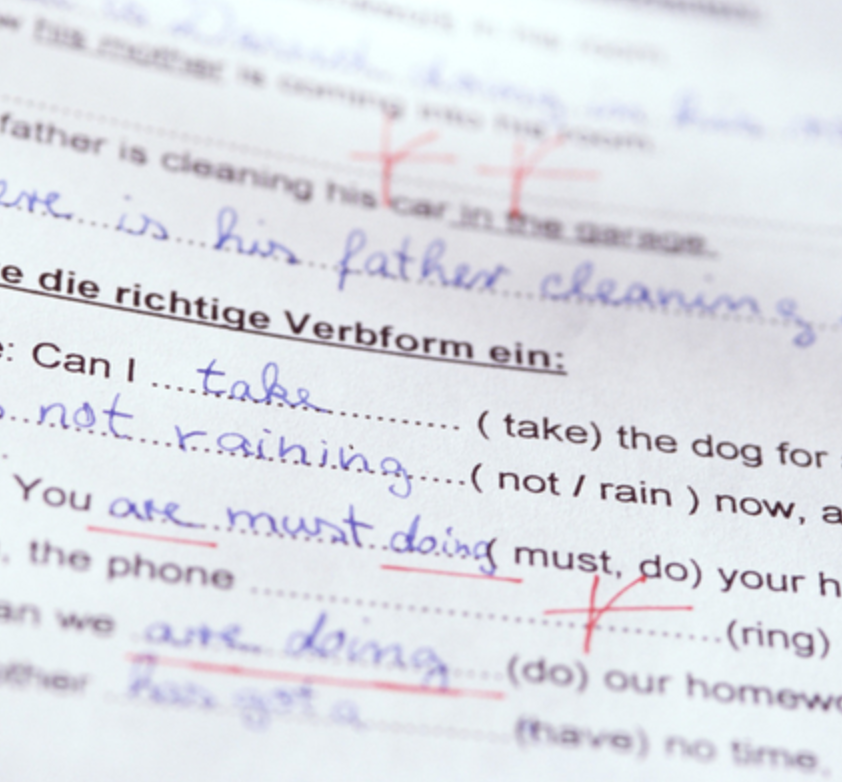 his mother is coming into his room.
father is cleaning his car in the garage.
is his father cleaning
die richtige Verbform ein:
Can I take ( take) the dog for
not raining ( not / rain ) now, a
You are must doing ( must, do) your h
the phone (ring)
an we are doing (do) our homewo
has got a (have) no time.